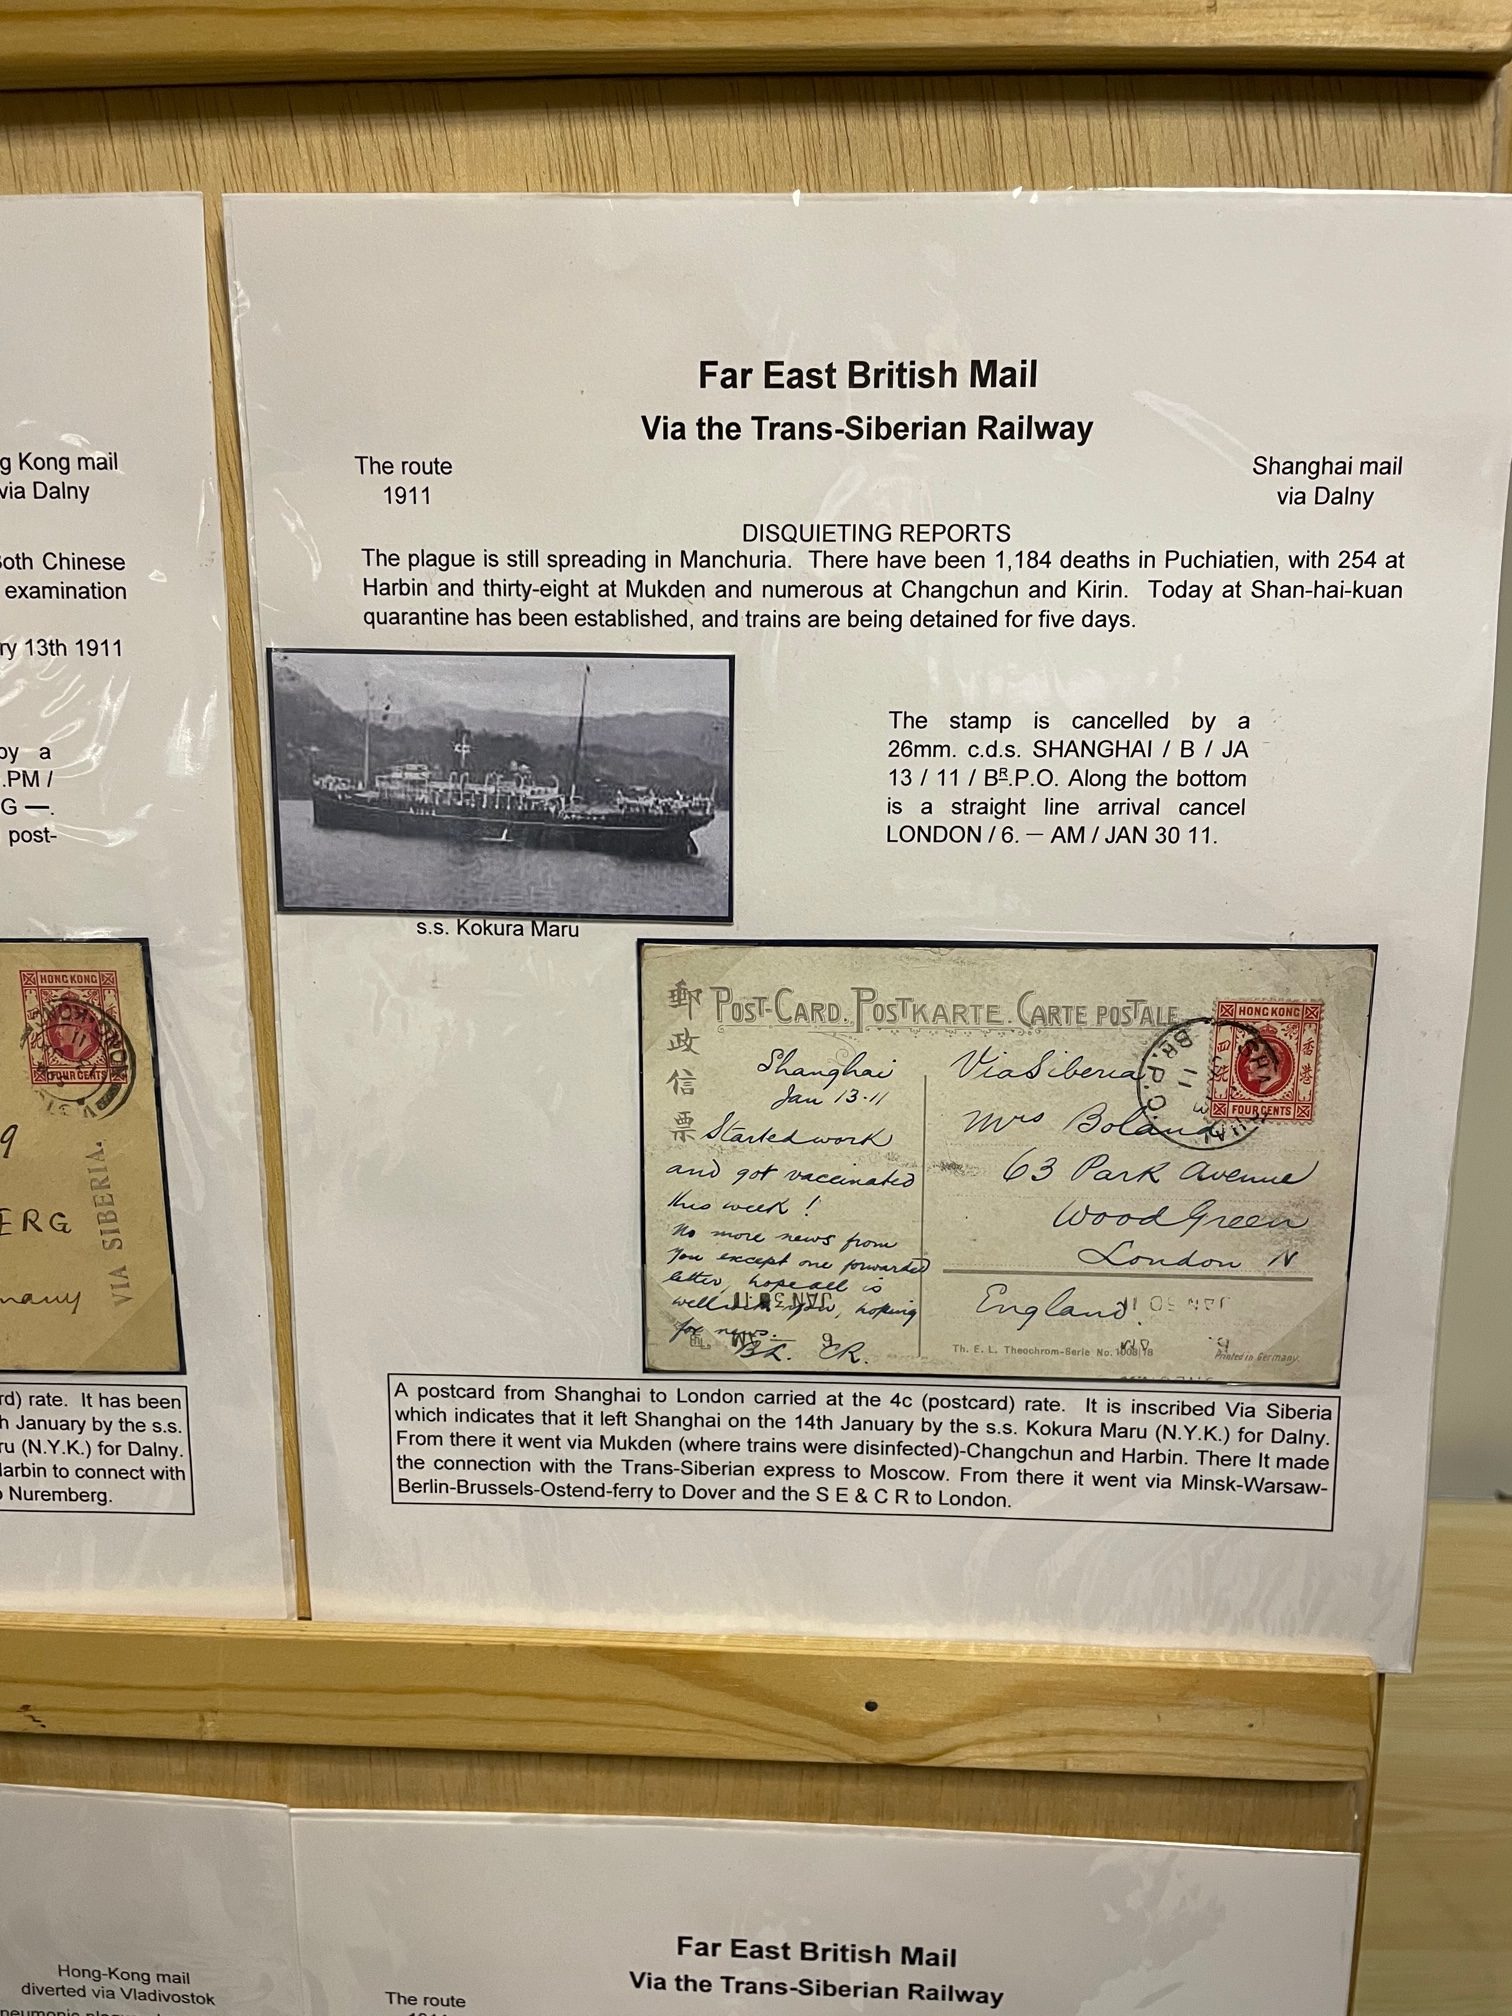 g Kong mail
via Dalny
Both Chinese
examination
ry 13th 1911
by a
.PM /
G —.
post-
HONG KONG
FOUR CENTS
9
VIA SIBERIA.
ERG
many
rd) rate. It has been
h January by the s.s.
ru (N.Y.K.) for Dalny.
Harbin to connect with
o Nuremberg.
Far East British Mail
Via the Trans-Siberian Railway
The route
1911
Shanghai mail
via Dalny
DISQUIETING REPORTS
The plague is still spreading in Manchuria. There have been 1,184 deaths in Puchiatien, with 254 at
Harbin and thirty-eight at Mukden and numerous at Changchun and Kirin. Today at Shan-hai-kuan
quarantine has been established, and trains are being detained for five days.
s.s. Kokura Maru
The stamp is cancelled by a
26mm. c.d.s. SHANGHAI / B / JA
13 / 11 / BR.P.O. Along the bottom
is a straight line arrival cancel
LONDON / 6. — AM / JAN 30 11.
郵政信票
POST-CARD. POSTKARTE. CARTE POSTALE
HONG KONG
四
香港
FOUR CENTS
BR. P.O.
Shanghai
Jan 13.11
Started work
and got vaccinated
this week!
No more news from
you except one forwarded
letter, hope all is
well with you, hoping
for news.
JAN 30 11
AM
Via Siberia
Mrs Boland
63 Park Avenue
Wood Green
London N
England.
JAN 30 11
Th. E. L. Theochrom-Serie No.
Printed in Germany.
A postcard from Shanghai to London carried at the 4c (postcard) rate. It is inscribed Via Siberia
which indicates that it left Shanghai on the 14th January by the s.s. Kokura Maru (N.Y.K.) for Dalny.
From there it went via Mukden (where trains were disinfected)-Changchun and Harbin. There It made
the connection with the Trans-Siberian express to Moscow. From there it went via Minsk-Warsaw-
Berlin-Brussels-Ostend-ferry to Dover and the S E & C R to London.
Hong-Kong mail
diverted via Vladivostok
Far East British Mail
Via the Trans-Siberian Railway
The route